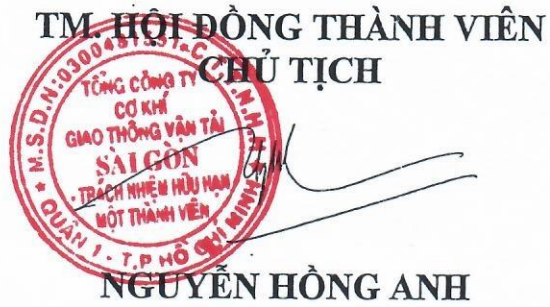 TM. HỘI ĐỒNG THÀNH VIÊN
CHỦ TỊCH
M.S.D.N:0300481551-C.T.T.N.H.H
TỔNG CÔNG TY
CƠ KHÍ
GIAO THÔNG VẬN TẢI
SÀI GÒN
TRÁCH NHIỆM HỮU HẠN
MỘT THÀNH VIÊN
QUẬN 1 - T.P HỒ CHÍ MINH
NGUYỄN HỒNG ANH